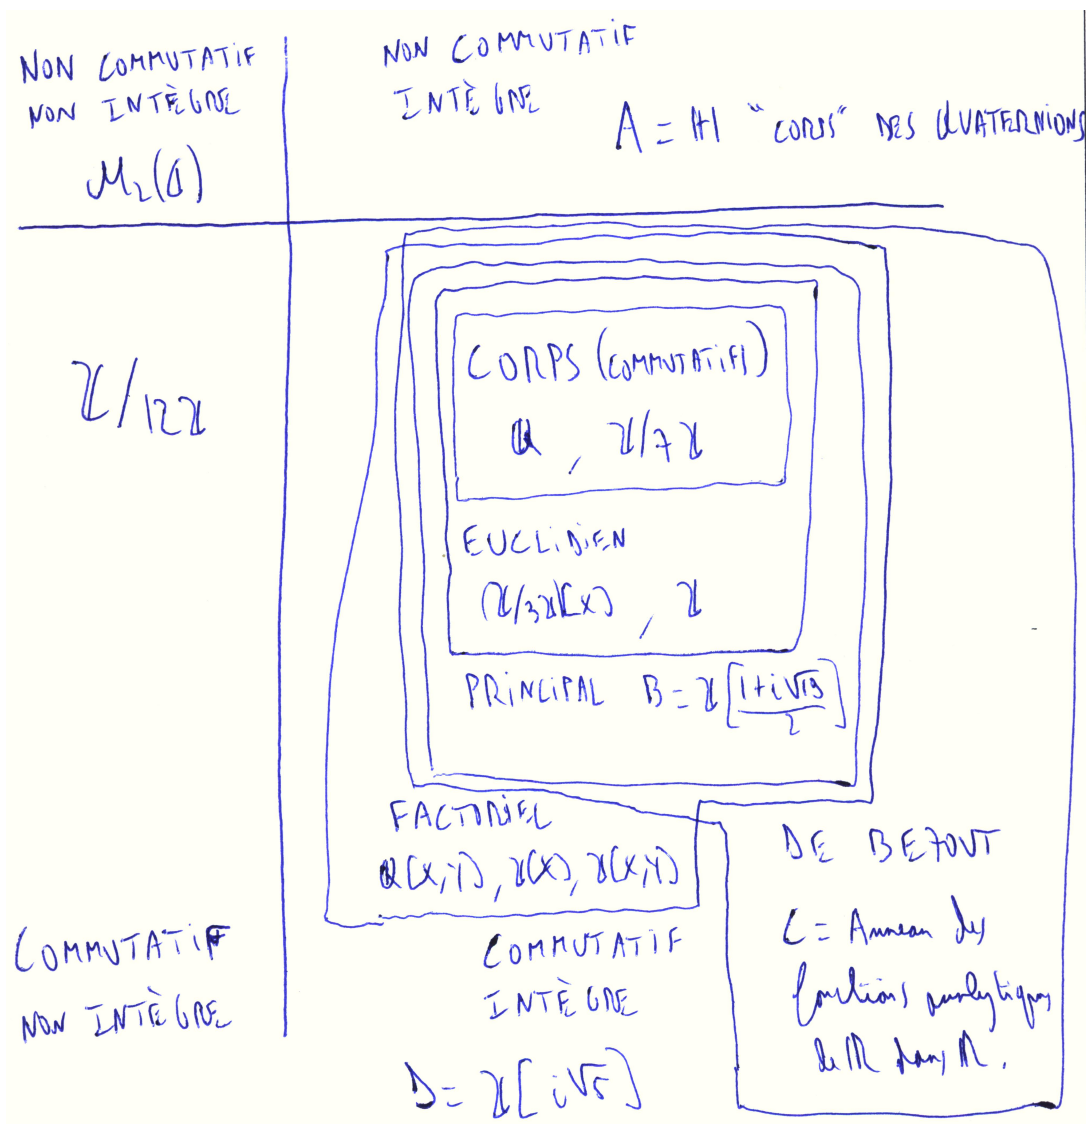 NON COMMUTATIF
NON INTÈGRE
M₂(ℂ)
NON COMMUTATIF
INTÈGRE
A = ℍ "CORPS" DES QUATERNIONS
ℤ/12ℤ
CORPS (COMMUTATIFS)
ℚ , ℤ/7ℤ
EUCLIDIEN
(ℤ/3ℤ)[X] , ℤ
PRINCIPAL B = ℤ[(1+i√19)/2]
FACTORIEL
ℚ[X,Y], ℤ[X], ℤ[X,Y]
DE BEZOUT
C = Anneau des
fonctions analytiques
de ℝ dans ℝ.
COMMUTATIF
NON INTÈGRE
COMMUTATIF
INTÈGRE
D = ℤ[i√5]